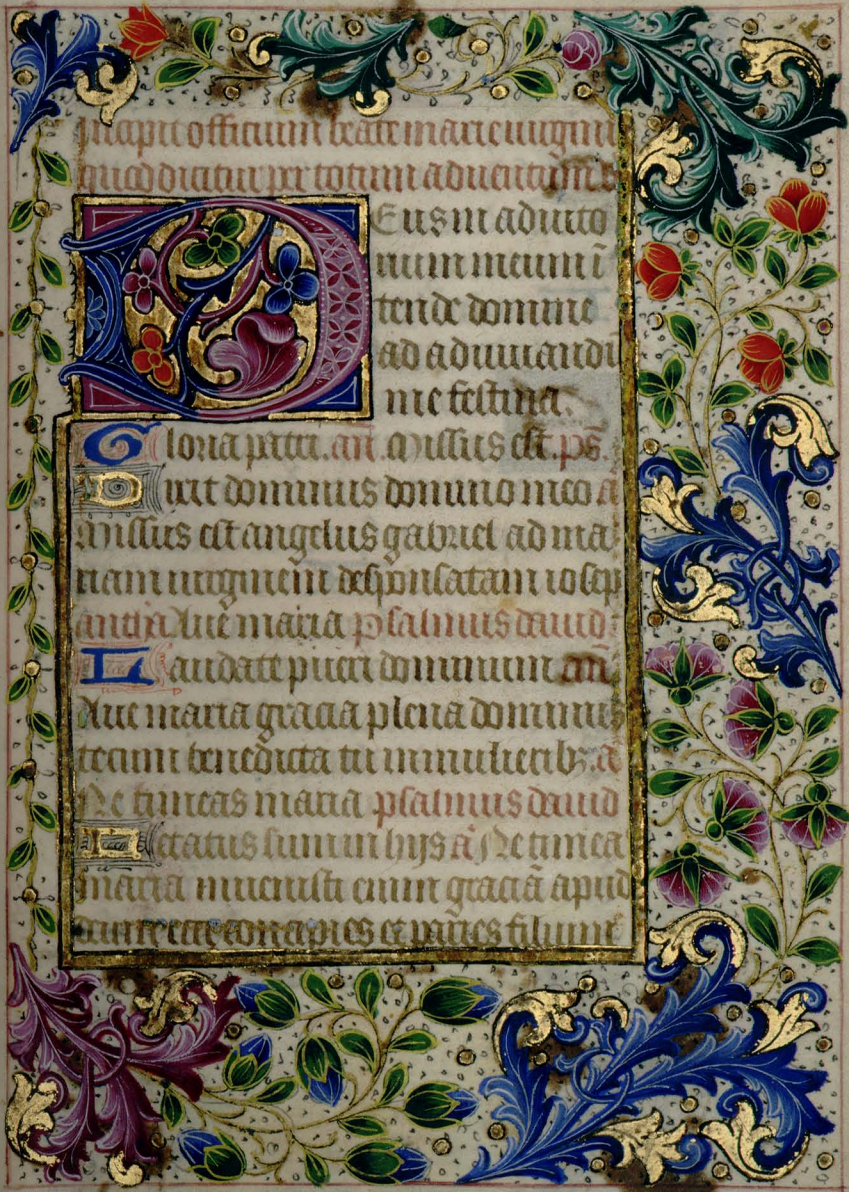 Incipit officium beate marie uirginis
quod dicitur per totum aduentum
Deus in adiuto
rium meum ī
tende domine
ad adiuuandū
me festina.
Gloria patri. añ. Missus est. ps̄.
Dixit dominus domino meo a
Missus est angelus gabriel ad ma
riam uirginem desponsatam iosep
antiph̄a Aue maria psalmus dauid
Laudate pueri dominum añ
Aue maria gracia plena dominus
tecum benedicta tu in mulieribꝫ. a
Ne timeas maria psalmus dauid
Letatus sum in hijs a Ne timea
maria inuenisti enim graciā apud
ecce concipies et paries filium